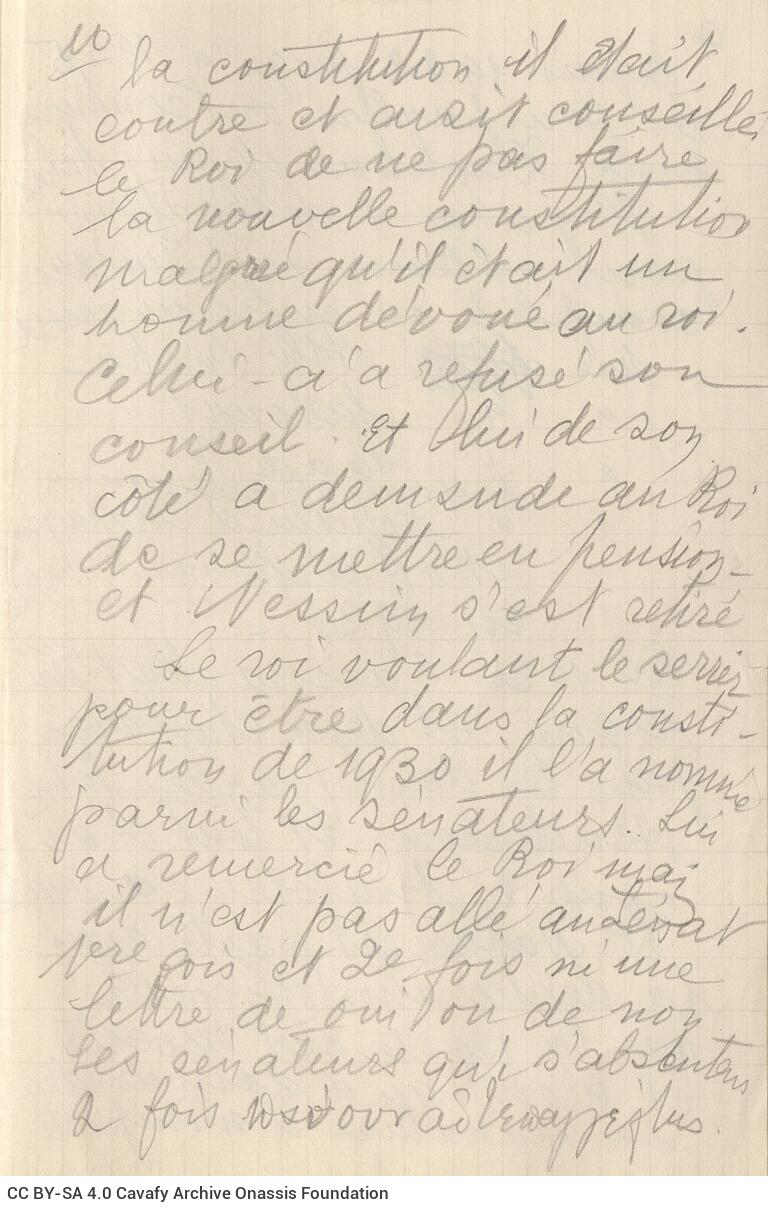 10
la constitution il était
contre et avait conseillé
le Roi de ne pas faire
la nouvelle constitution
malgré qu'il était un
homme dévoué au roi.
Celui-ci a refusé son
conseil. Et lui de son
côté a demande au Roi
de se mettre en pension
et Nessim s'est retiré
Le roi voulant le serrer
pour être dans la consti-
tution de 1930 il l'a nommé
parmi les sénateurs. Lui
a remercié le Roi mais
il n'est pas allé au Sénat
1ere fois et 2e fois ni une
lettre de oui ou de non
Les sénateurs qui s'absentens
2 fois
CC BY-SA 4.0 Cavafy Archive Onassis Foundation